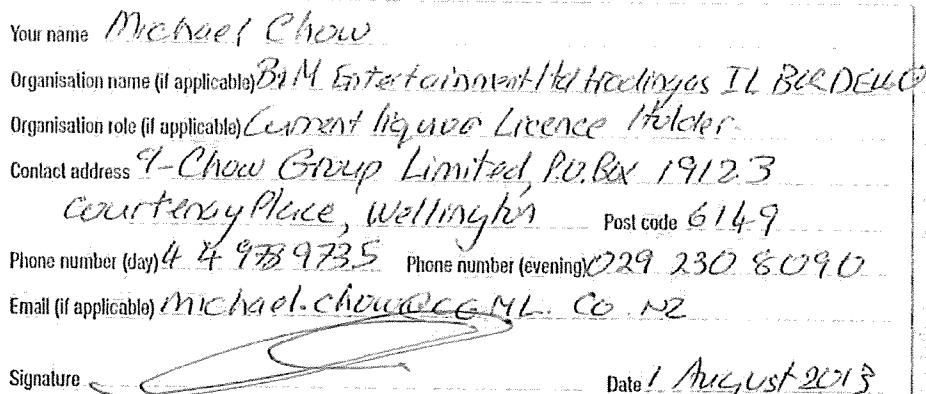 Your name Michael Chow
Organisation name (if applicable) B&M Entertainment Ltd trading as IL BORDELLO
Organisation role (if applicable) Current liquor Licence Holder.
Contact address C/- Chow Group Limited, P.O. Box 19123
Courtenay Place, Wellington Post code 6149
Phone number (day) 4 4 978 9735 Phone number (evening) 029 230 8090
Email (if applicable) michael.chow@CGML.CO.NZ
Signature Date 1 August 2013